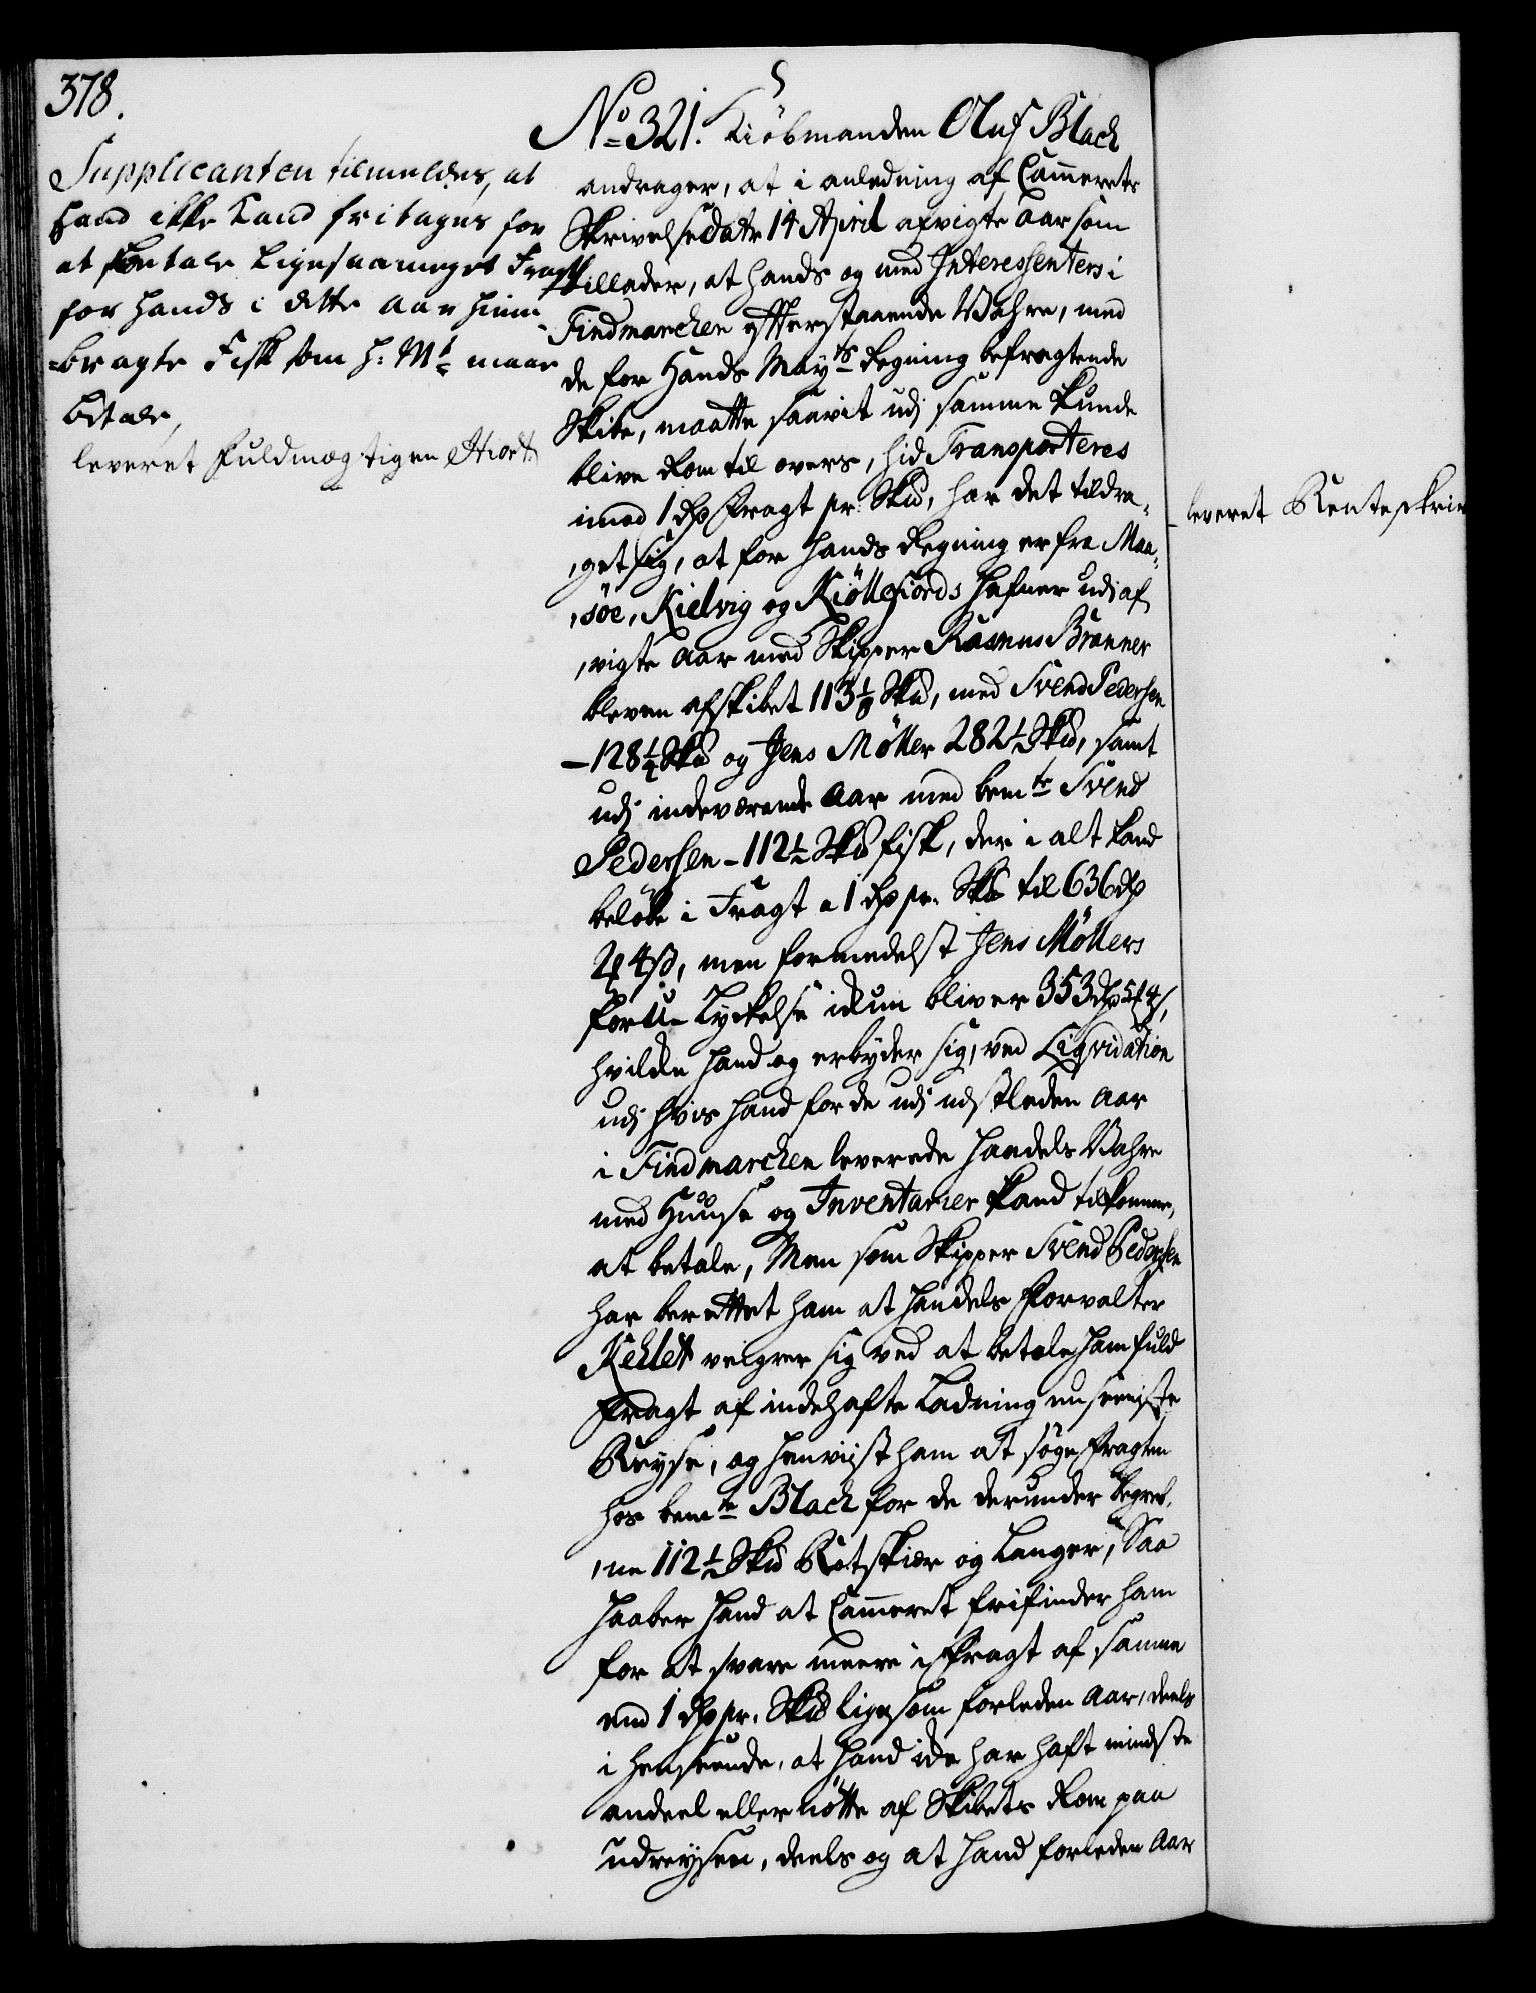 378.
Supplicanten tilmeldes, at
hand ikke kand fritages for
at betale ligesaameget Fragt
for hands i dette aar hiem-
-bragte Fisk som H: Mt maae
betale,
leveret Fuldmægtigen Hiort
No 321. Kiøbmanden Oluf Blach
andrager, at i anledning af Cammerets
Skrivelse dato 14 April afvigte aar som
tillader, at hands og med Interessenters i
Findmarchen efterstaaende Vahre, med
de for Hands Mayts Regning befragtende
Skibe, maatte saavit udj samme kunde
blive Rom til overs, hid Transporteres
imod 1 rdr Fragt pr Skd, har det tildra-
,get sig, at for hands Regning er fra Maa-
,søe, Kielvig og Kiøllefiords Hafner udi af
,vigte aar med Skipper Rasmus Brønner
bleven afskibet 113 1/8 Skd, med Svend Pedersen
- 128 1/4 Skd og Jens Møller 282 1/2 Skd, samt
udj indeværende aar med bemte Svend
Pedersen - 112 1/2 Skd fisk, der i alt kand
beløbe i Fragt a 1 rdr pr. Skd til 636 rdr
2 4 s, men formedelst Jens Møllers
foru- Lyckelse ickun bliver 353 rdr 5 4 s,
hvilcke hand og erbyder sig, ved Liqvidation
udj hvis hand for de udj nestleden aar
i Findmarchen leverede Handels Vahre
med Huuse og Inventarier kand tilkomme,
at betale, Men som Skipper Svend Pedersen
har berettet ham at Handels Forvalter
Kehlet veigrer sig ved at betale ham fuld
Fragt af indehafte Ladning nu seeniste
Reyse, og henviist ham at søge fragten
hos bemte Blach for de derunder begreb-
,ne 112 1/2 Skd Rotskier og Langer, Saa
haaber hand at Cammeret frifinder ham
for at svare meere i Fragt af samme
end 1 rdr pr. Skd ligesom forleden aar, deels
i henseende, at hand icke har haft mindste
andeel eller nøtte af Skibets Rom paa
udreysen, deels og at hand forleden aar
leveret Renteskriv